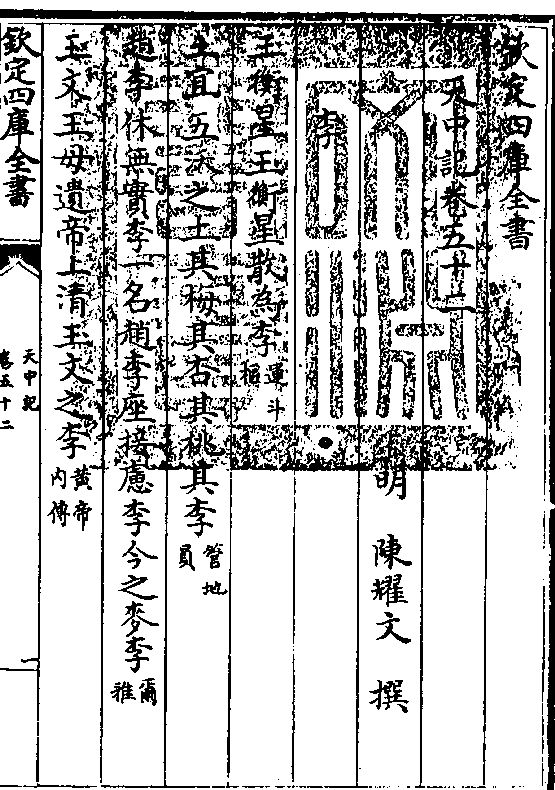 欽定四庫全書
天中記卷五十二
明 陳耀文 撰
李
玉衡星玉衡星散為李運斗樞
土宜五沃之土其梅其杏其桃其李管地員
趙李休無實李一名趙李座接慮李今之麥李爾雅
玉文王母遺帝上清玉文之李黃帝內傳
欽定四庫全書
天中記
卷五十二
一